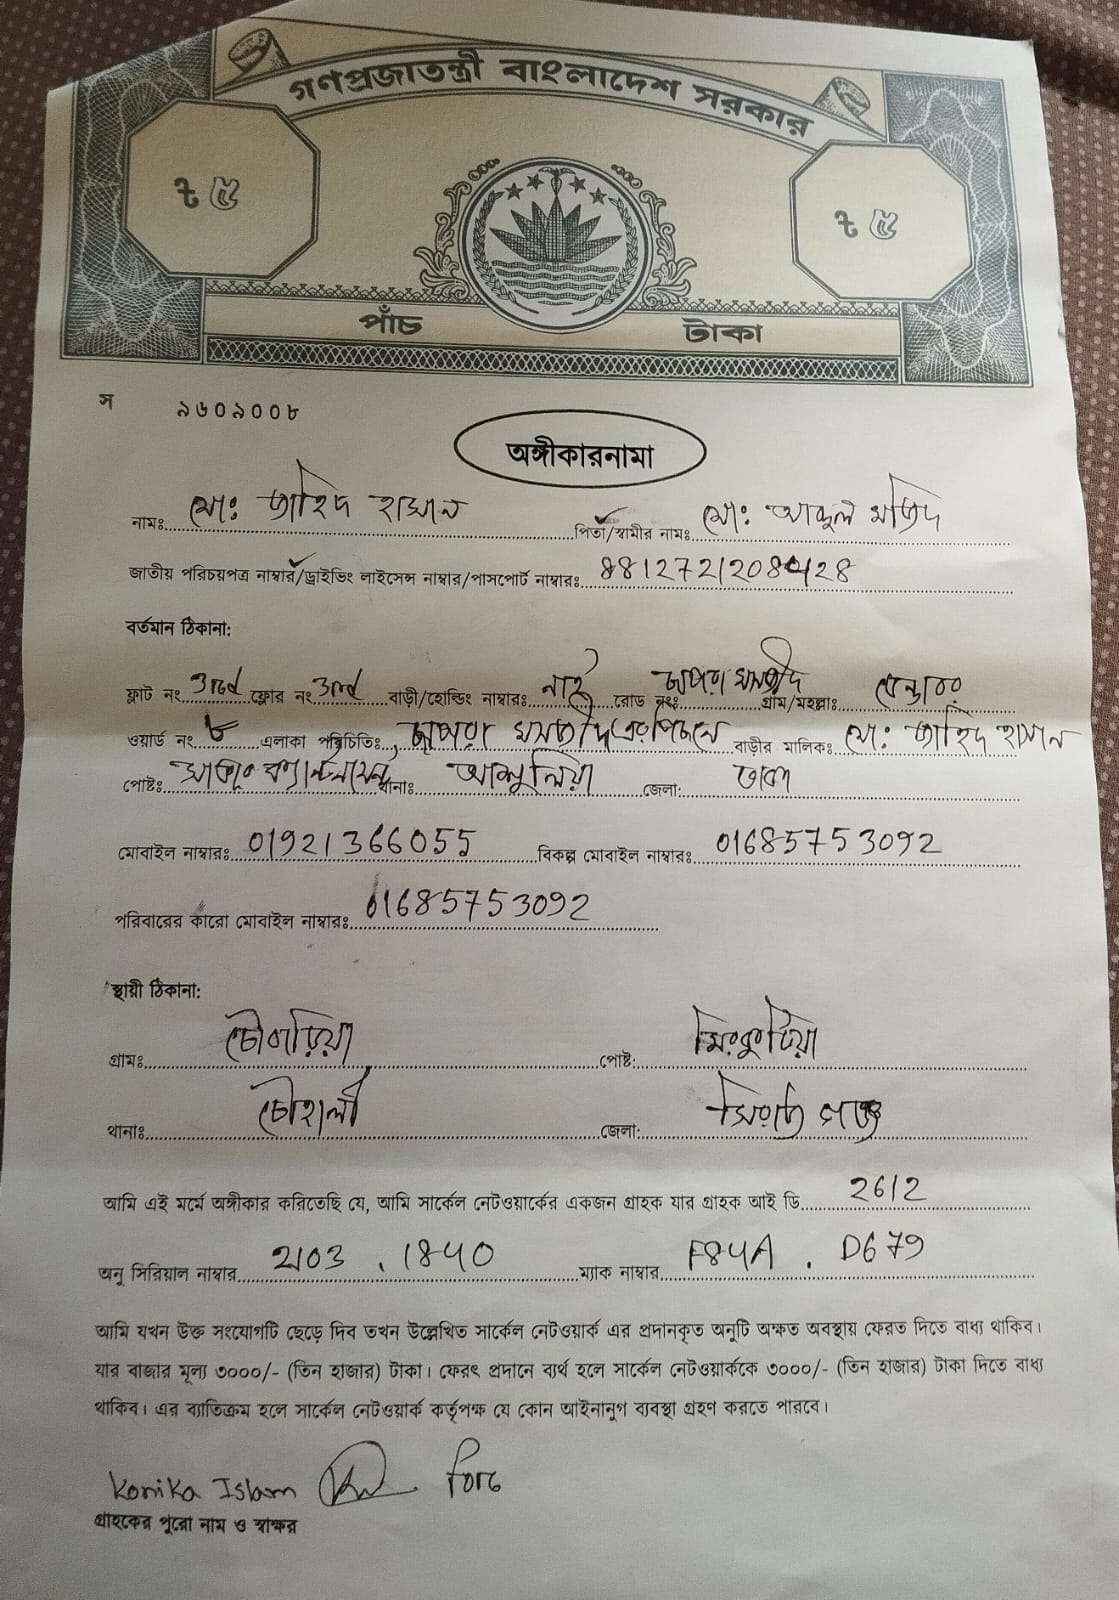 গণপ্রজাতন্ত্রী বাংলাদেশ সরকার
৳ ৫
৳ ৫
পাঁচ টাকা
স ৯৬০৯০০৮
অঙ্গীকারনামা
নামঃ মোঃ জাহিদ হাসান পিতা/স্বামীর নামঃ মোঃ আব্দুল মজিদ
জাতীয় পরিচয়পত্র নাম্বার/ড্রাইভিং লাইসেন্স নাম্বার/পাসপোর্ট নাম্বারঃ
বর্তমান ঠিকানা:
ফ্লাট নং 3rd ফ্লোর নং 3rd বাড়ী/হোল্ডিং নাম্বারঃ নাই রোড নংঃ মসজীদ গ্রাম/মহল্লাঃ
ওয়ার্ড নং ৮ এলাকা পরিচিতিঃ মসজীদ এর পিছনে বাড়ীর মালিকঃ মোঃ জাহিদ হাসান
পোষ্টঃ সাভার ক্যান্টনমেন্ট থানাঃ আশুলিয়া জেলা: ঢাকা
মোবাইল নাম্বারঃ 01921366055 বিকল্প মোবাইল নাম্বারঃ 01685753092
পরিবারের কারো মোবাইল নাম্বারঃ 01685753092
স্থায়ী ঠিকানা:
গ্রামঃ পোষ্ট:
থানাঃ চৌহালী জেলা: সিরাজগঞ্জ
আমি এই মর্মে অঙ্গীকার করিতেছি যে, আমি সার্কেল নেটওয়ার্কের একজন গ্রাহক যার গ্রাহক আই ডি 2612
অনু সিরিয়াল নাম্বার 2103 . 1840 ম্যাক নাম্বার F84A . D679
আমি যখন উক্ত সংযোগটি ছেড়ে দিব তখন উল্লেখিত সার্কেল নেটওয়ার্ক এর প্রদানকৃত অনুটি অক্ষত অবস্থায় ফেরত দিতে বাধ্য থাকিব।
যার বাজার মূল্য ৩০০০/- (তিন হাজার) টাকা। ফেরৎ প্রদানে ব্যর্থ হলে সার্কেল নেটওয়ার্ককে ৩০০০/- (তিন হাজার) টাকা দিতে বাধ্য
থাকিব। এর ব্যাতিক্রম হলে সার্কেল নেটওয়ার্ক কর্তৃপক্ষ যে কোন আইনানুগ ব্যবস্থা গ্রহণ করতে পারবে।
Konika Islam
গ্রাহকের পুরো নাম ও স্বাক্ষর